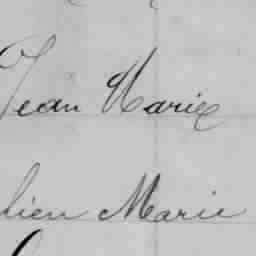 Jean Marie
lien Marie